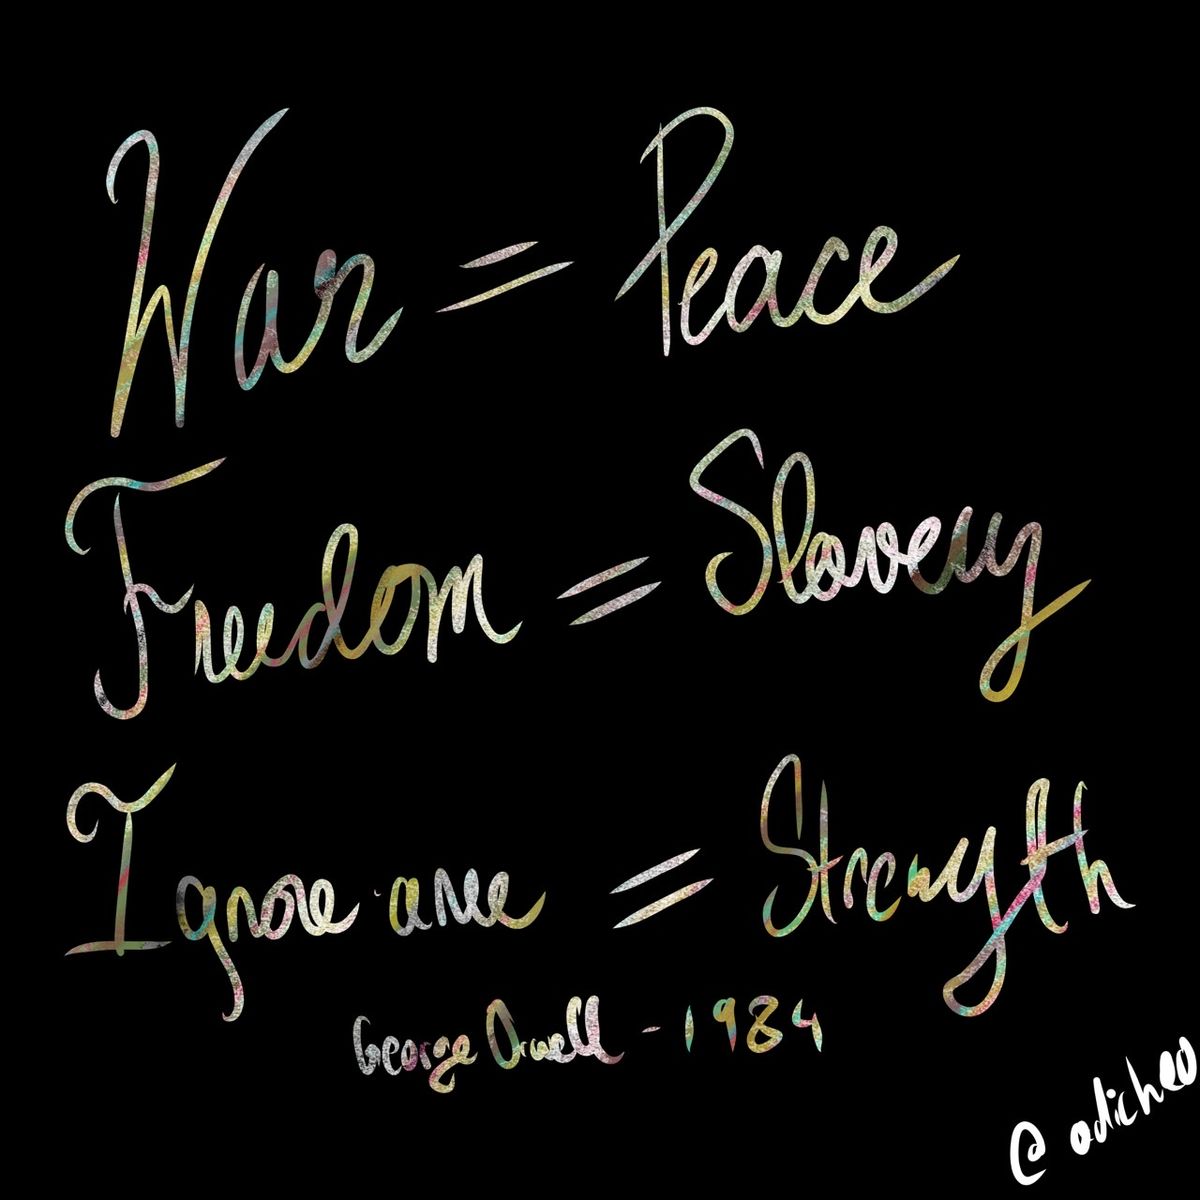 War = Peace
Freedom = Slavery
Ignorance = Strength
George Orwell - 1984
@adicheo